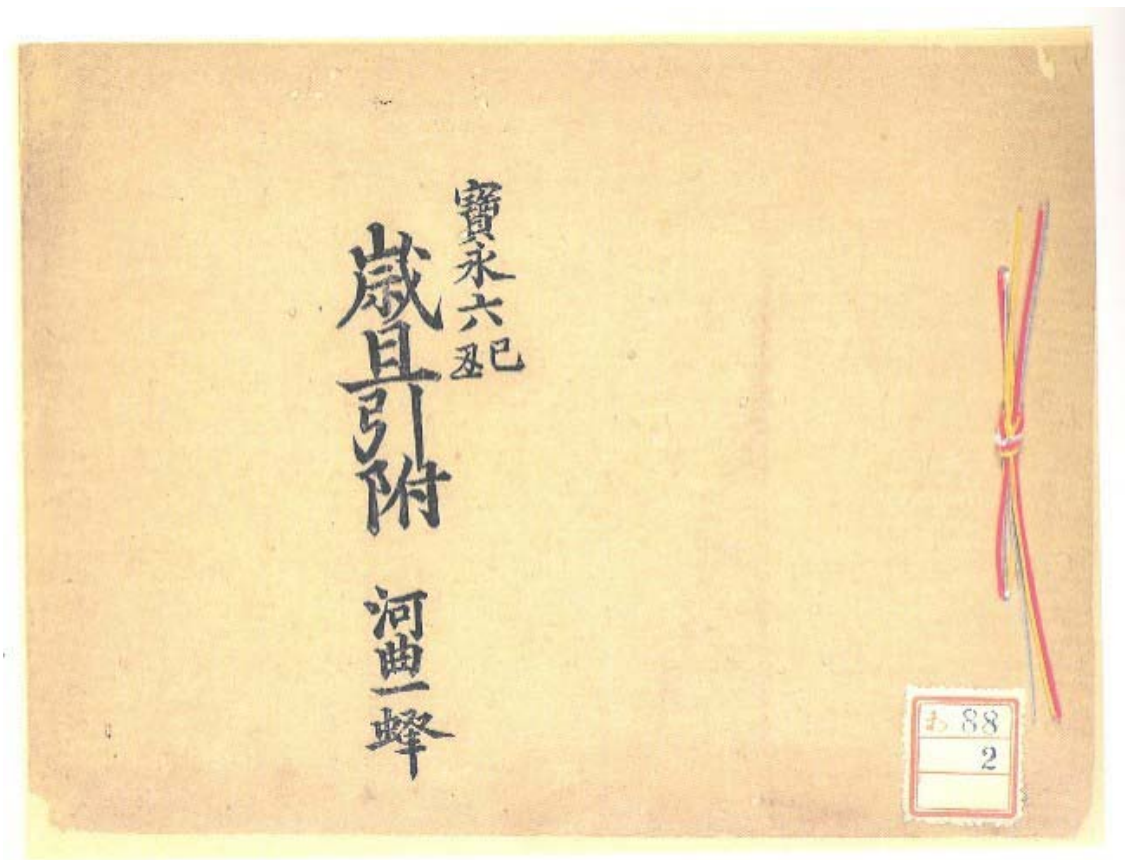 寶永六己丑
歳旦引附 河曲一蜂
わ 88
2